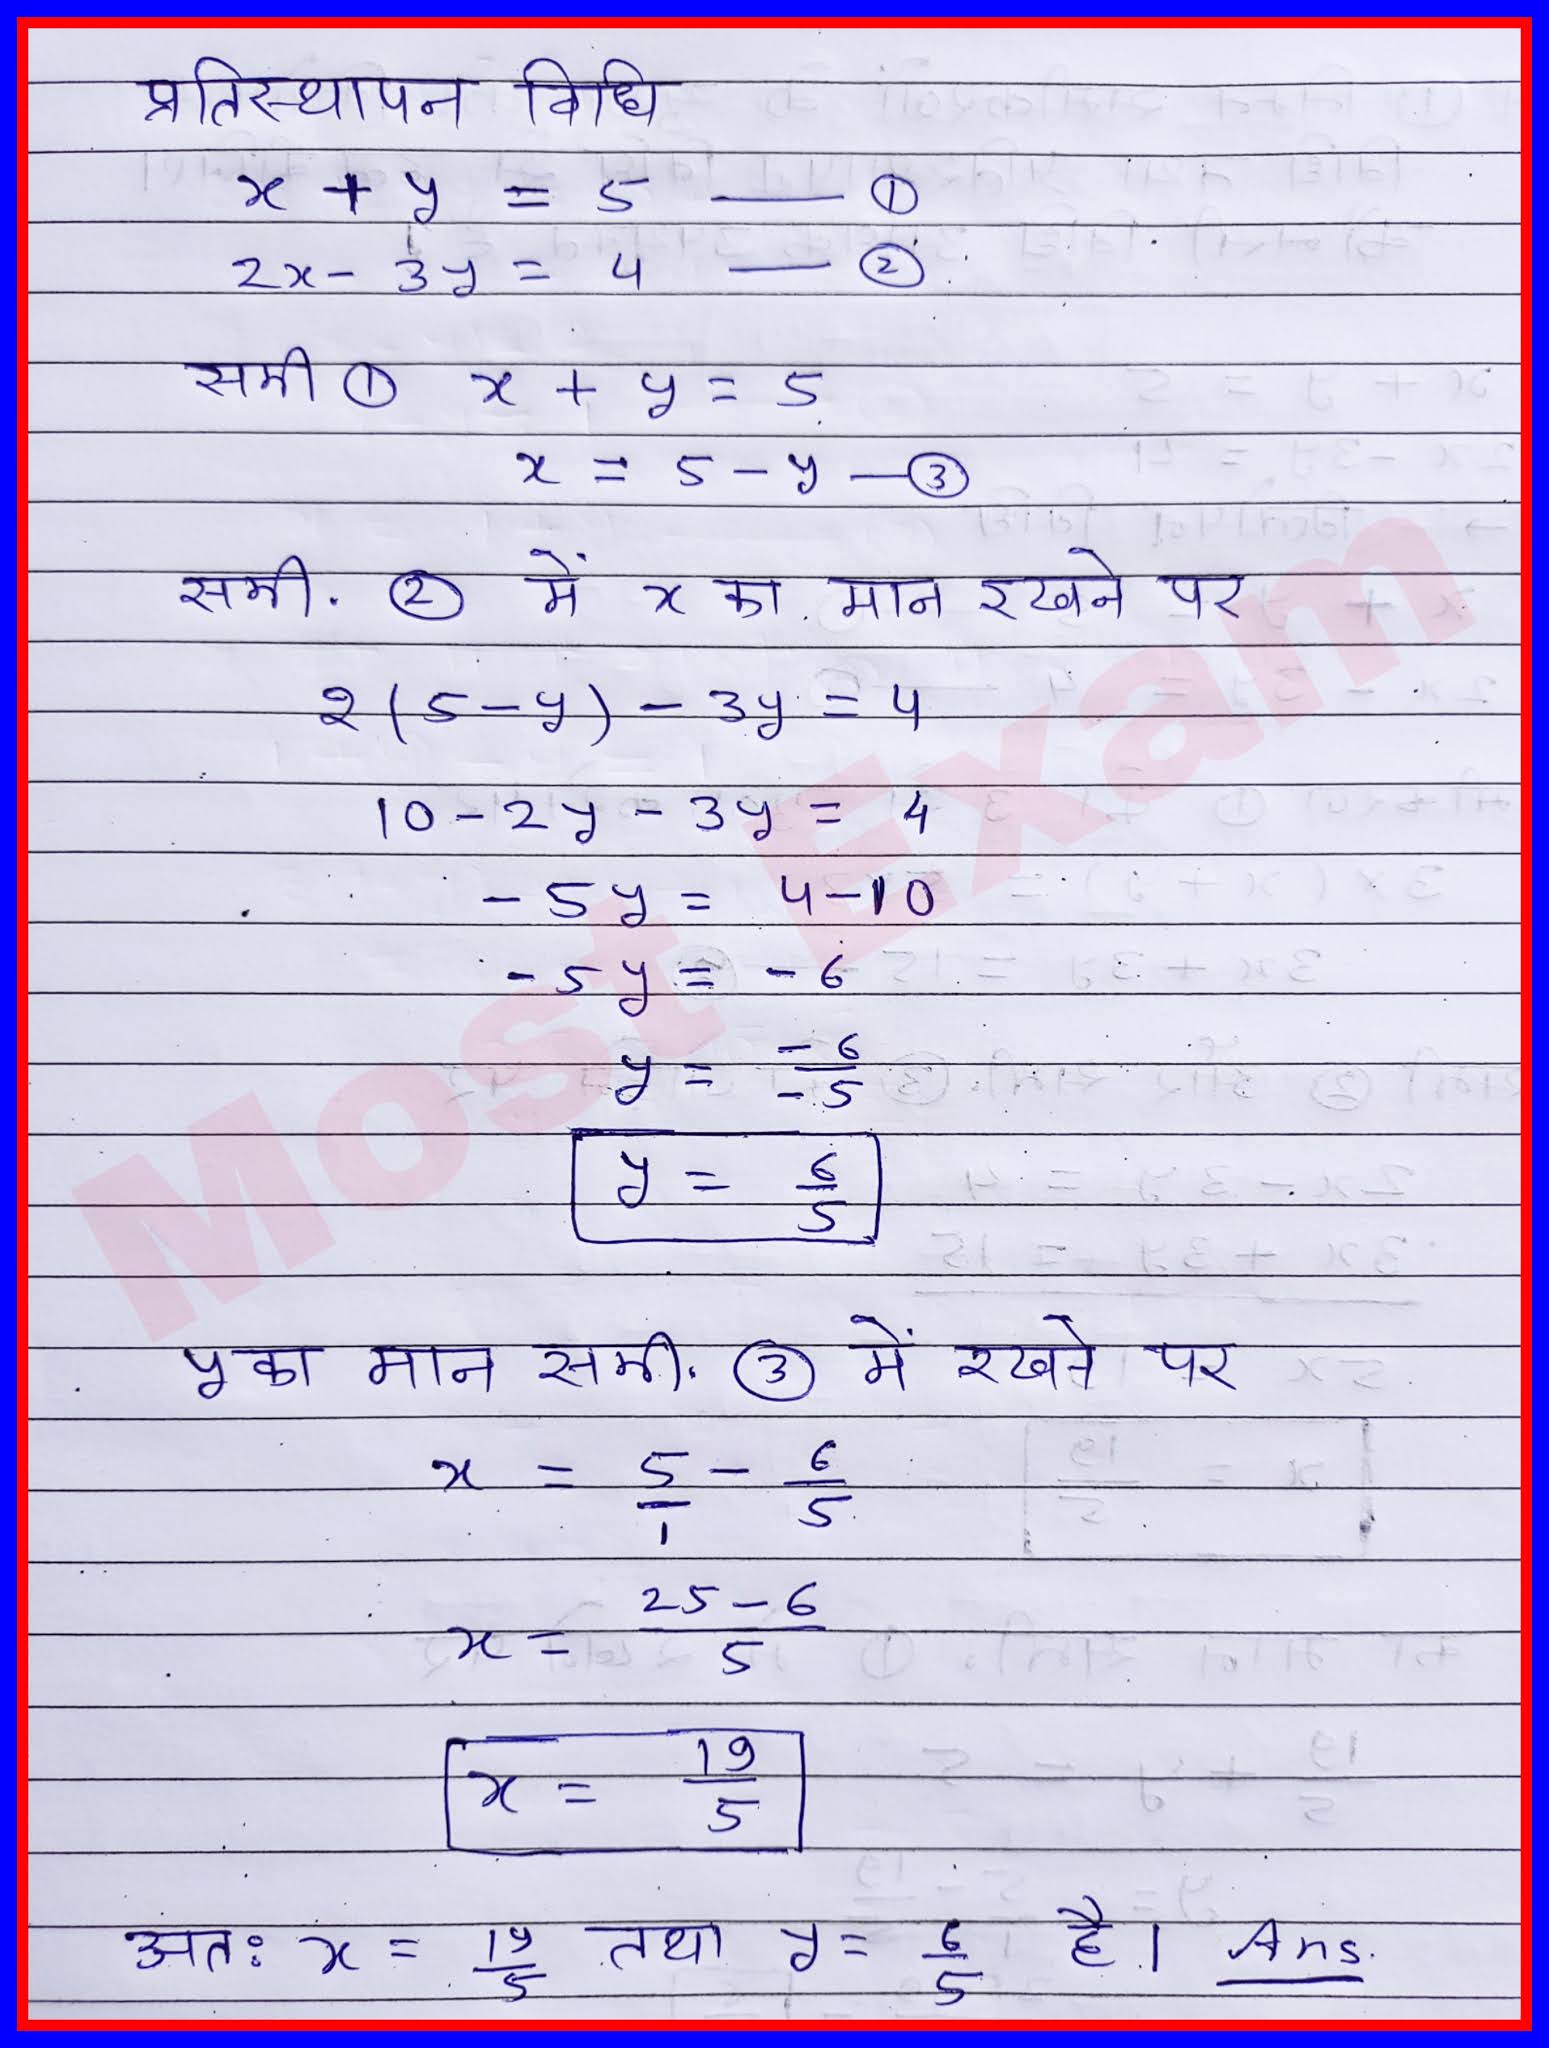 प्रतिस्थापन विधि
x + y = 5 — ①
2x - 3y = 4 — ②
समी ① x + y = 5
x = 5 - y — ③
समी. ② में x का मान रखने पर
2(5 - y) - 3y = 4
10 - 2y - 3y = 4
-5y = 4 - 10
-5y = -6
y = -6/-5
y = 6/5
y का मान समी. ③ में रखने पर
x = 5/1 - 6/5
x = 25 - 6/5
x = 19/5
अतः x = 19/5 तथा y = 6/5 है। Ans.
Most Exam